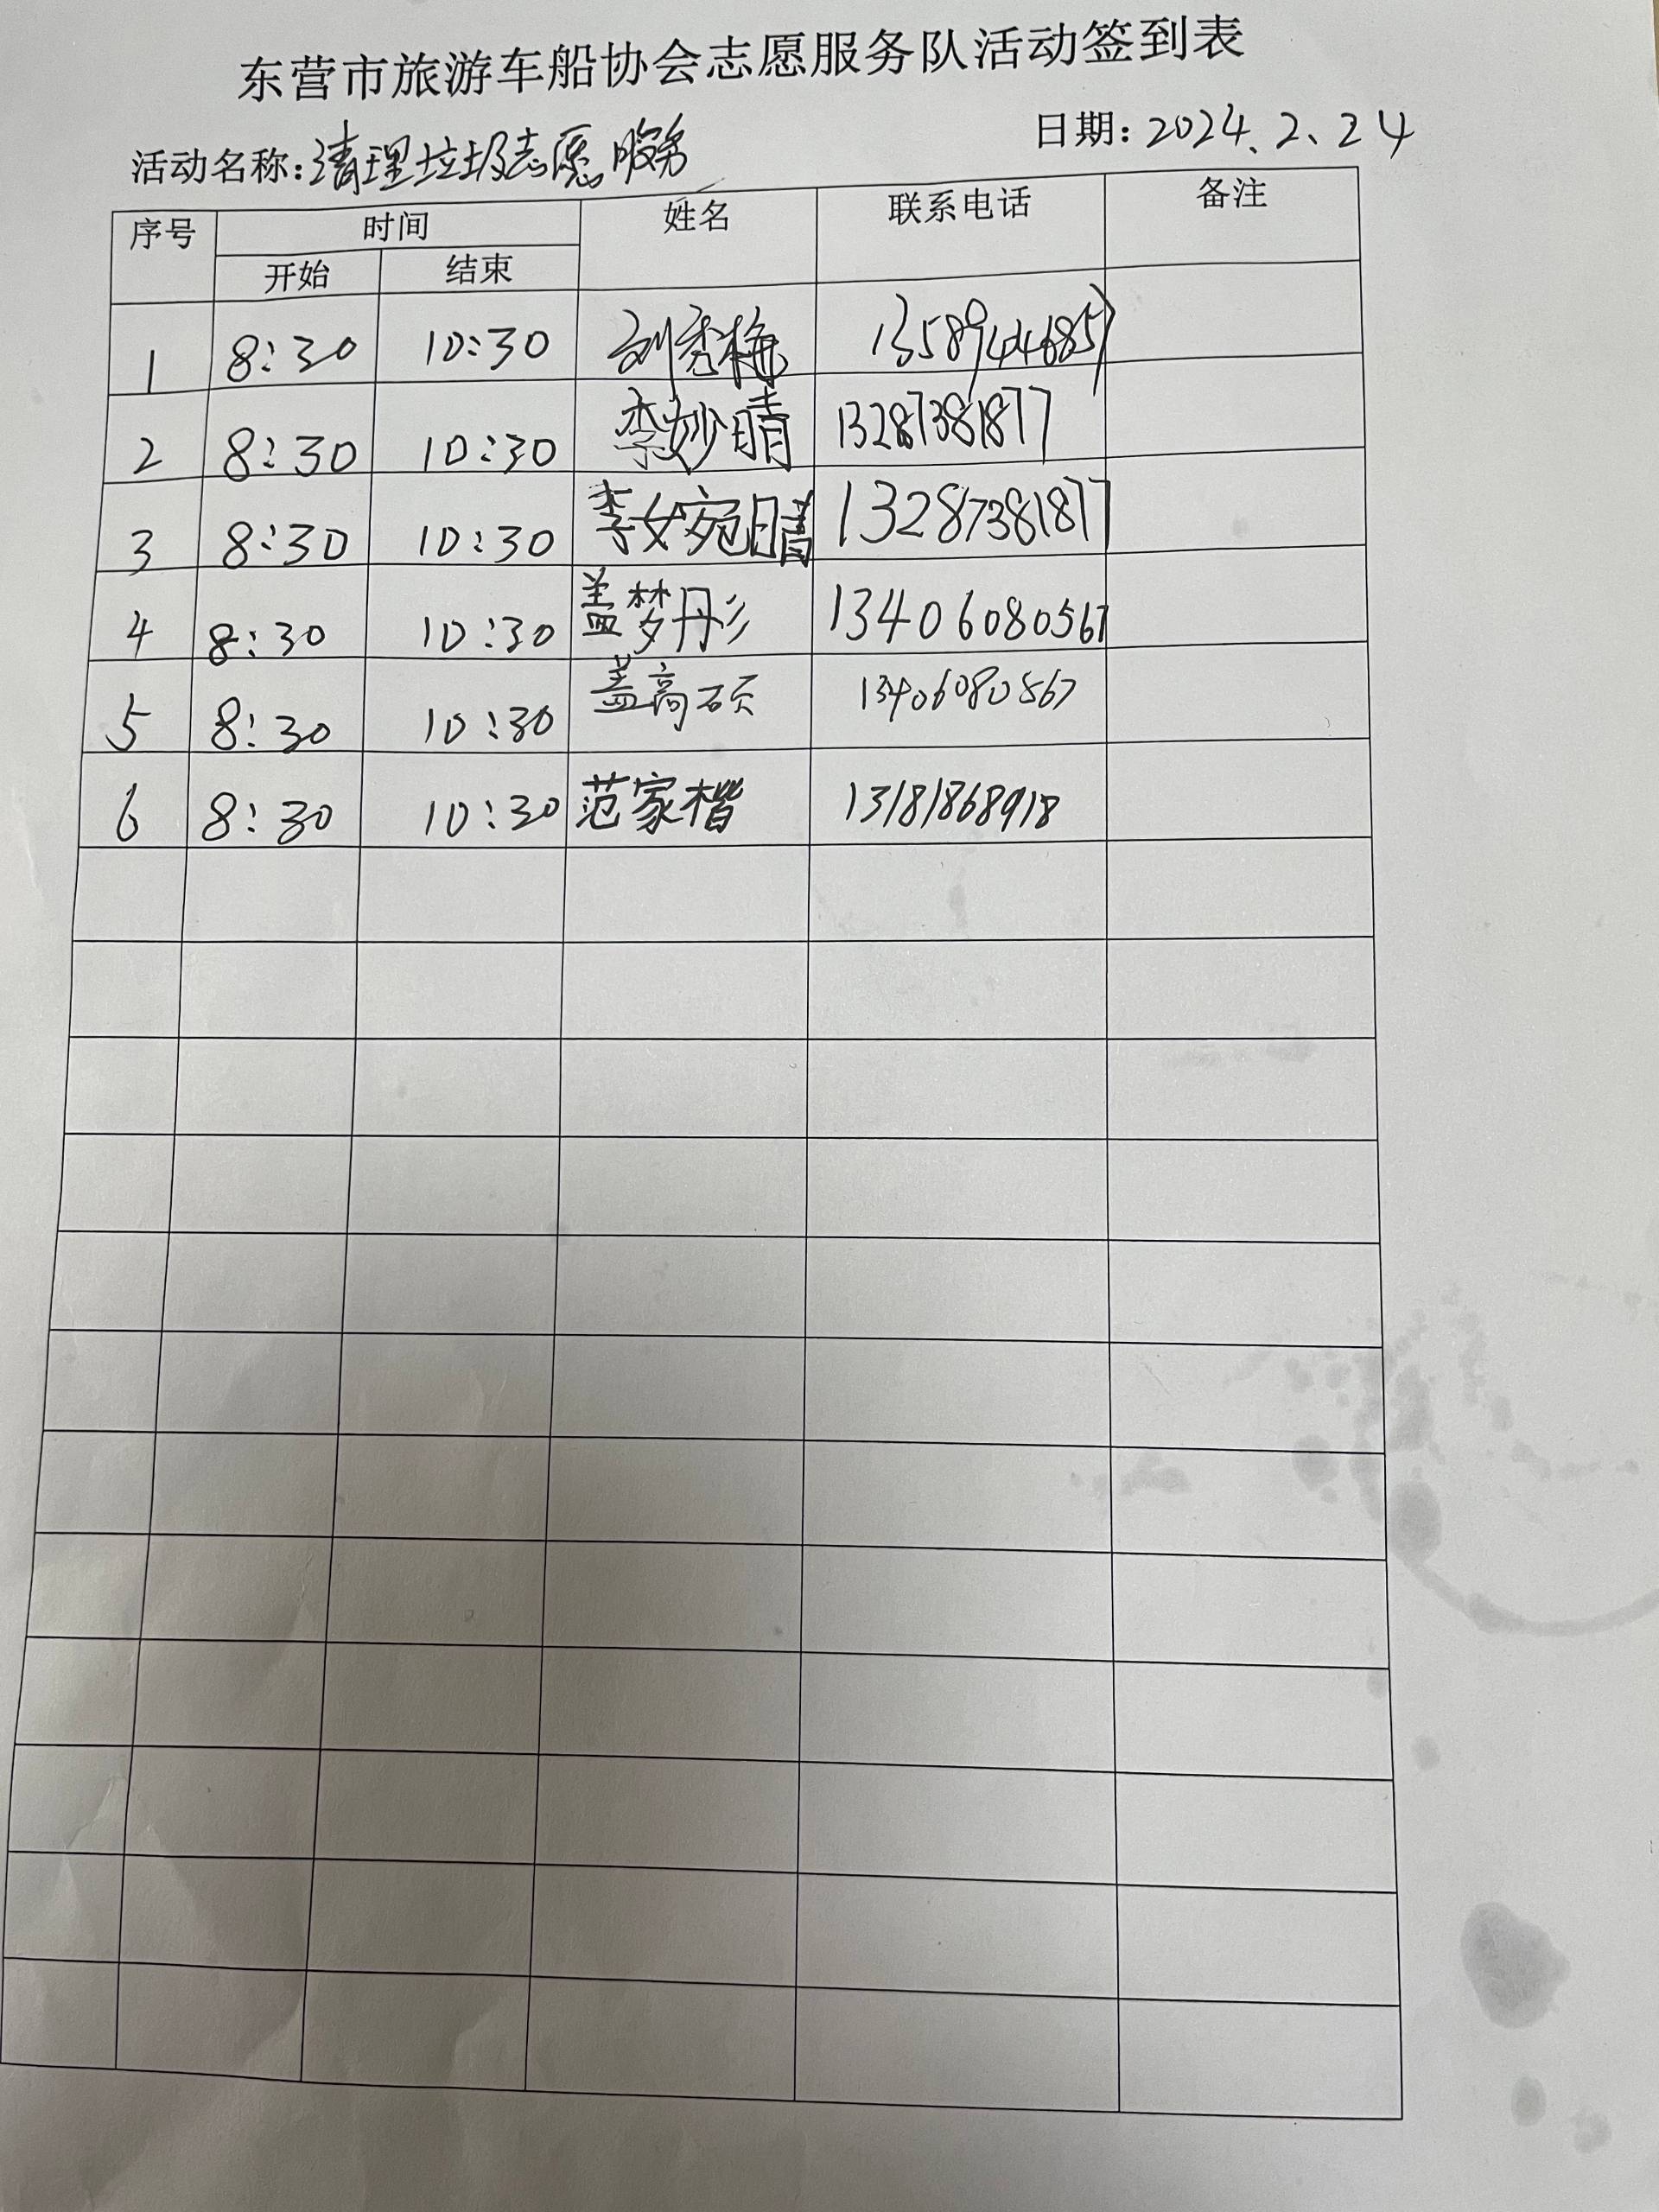 东营市旅游车船协会志愿服务队活动签到表
活动名称:清理垃圾志愿服务 日期:2024.2.24
序号 时间 姓名 联系电话 备注
开始 结束
1 8:30 10:30 刘秀梅
2 8:30 10:30 李妙晴 13287381877
3 8:30 10:30 李婉晴 13287381877
4 8:30 10:30 盖梦彤 13406080567
5 8:30 10:30 盖高硕 13406080567
6 8:30 10:30 范家楷 13181868918